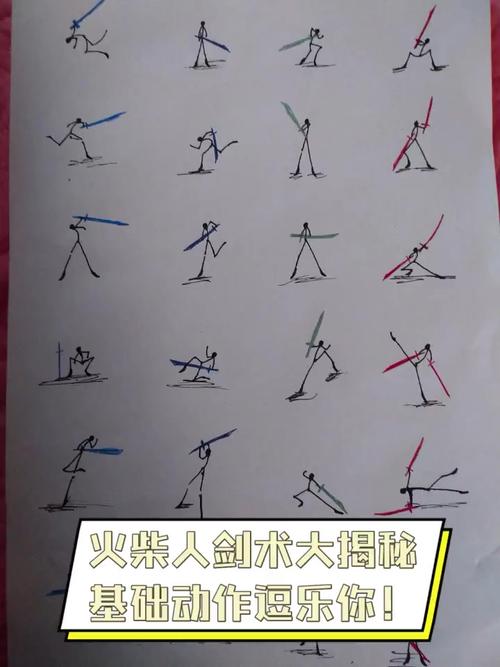 火柴人剑术大揭秘
基础动作逗乐你！